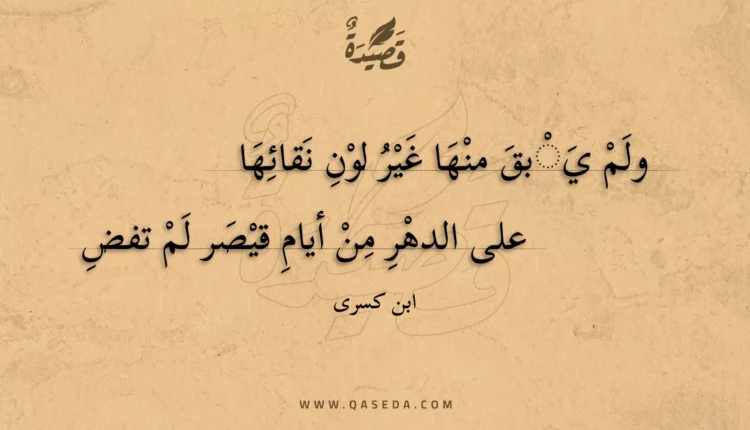 قَصِيْدَةٌ
ولَمْ يَ ْبقَ منْهَا غَيْرُ لوْنِ نَقائِهَا
على الدهْرِ مِنْ أيامِ قيْصَر لَمْ تفضِ
ابن كسرى
WWW.QASEDA.COM